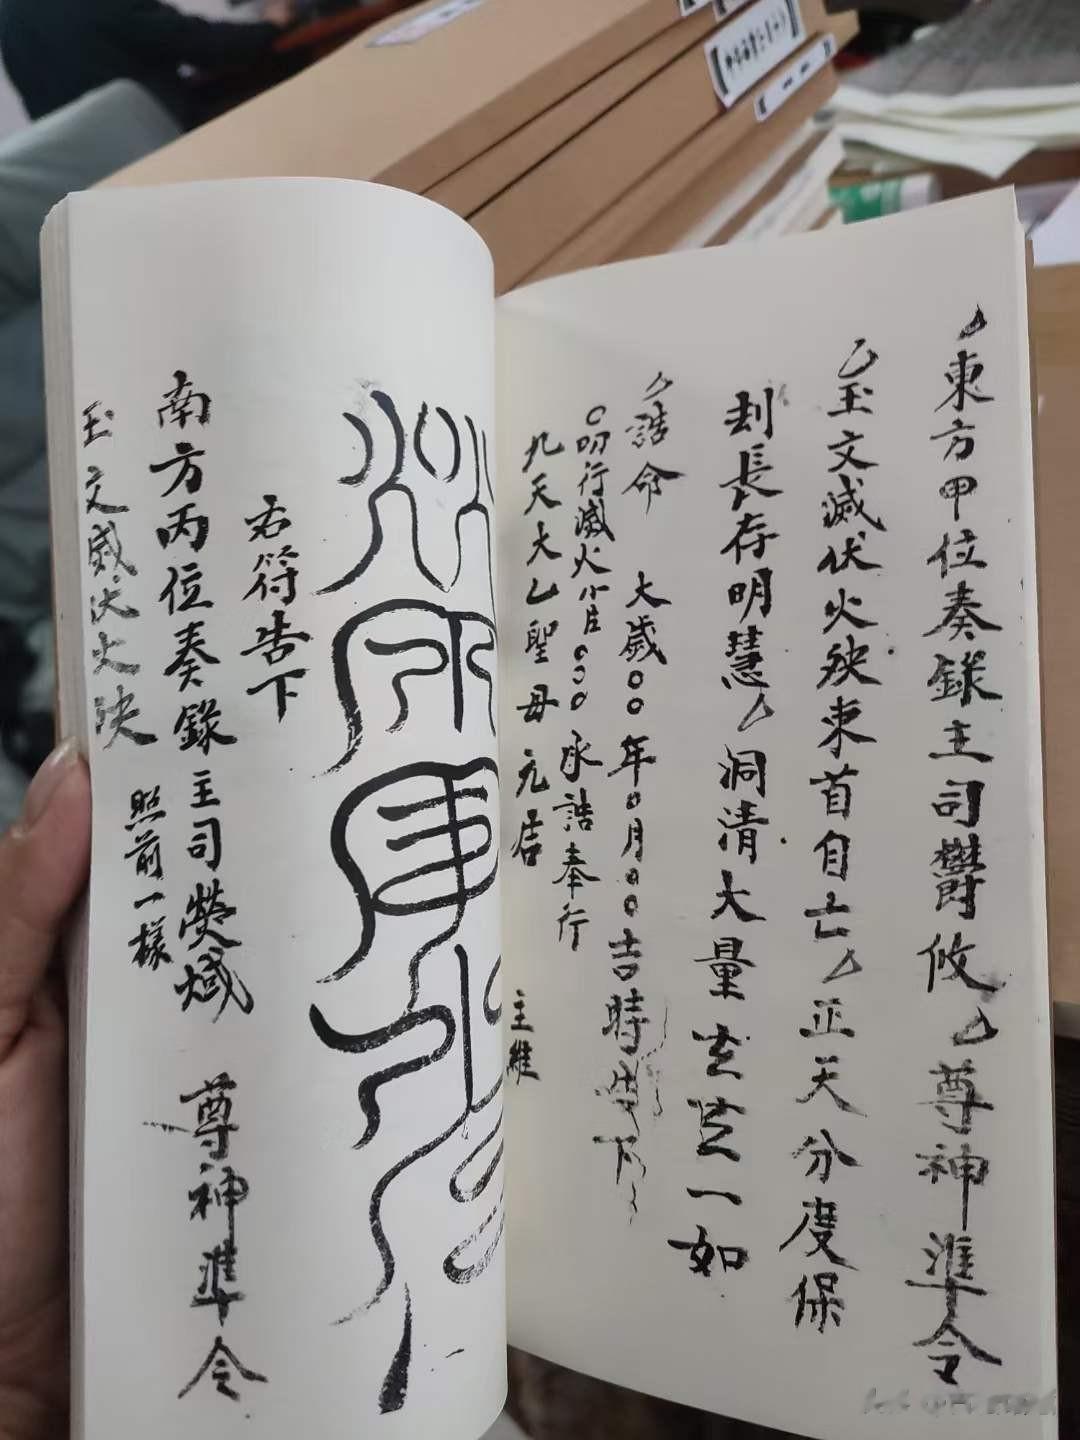 東方甲位奏錄主司鬱攸尊神準令
玉文滅伏火殃東首自亡正天分度保
刦長存明慧洞清大量玄玄一如
誥命 大歲〇〇年〇月〇〇吉時告下
〇叨行滅火小臣〇〇〇承誥奉行
九天大乙聖母元君 主維
右符告下
南方丙位奏錄主司熒惑 尊神準令
照前一樣
玉文威伏火殃